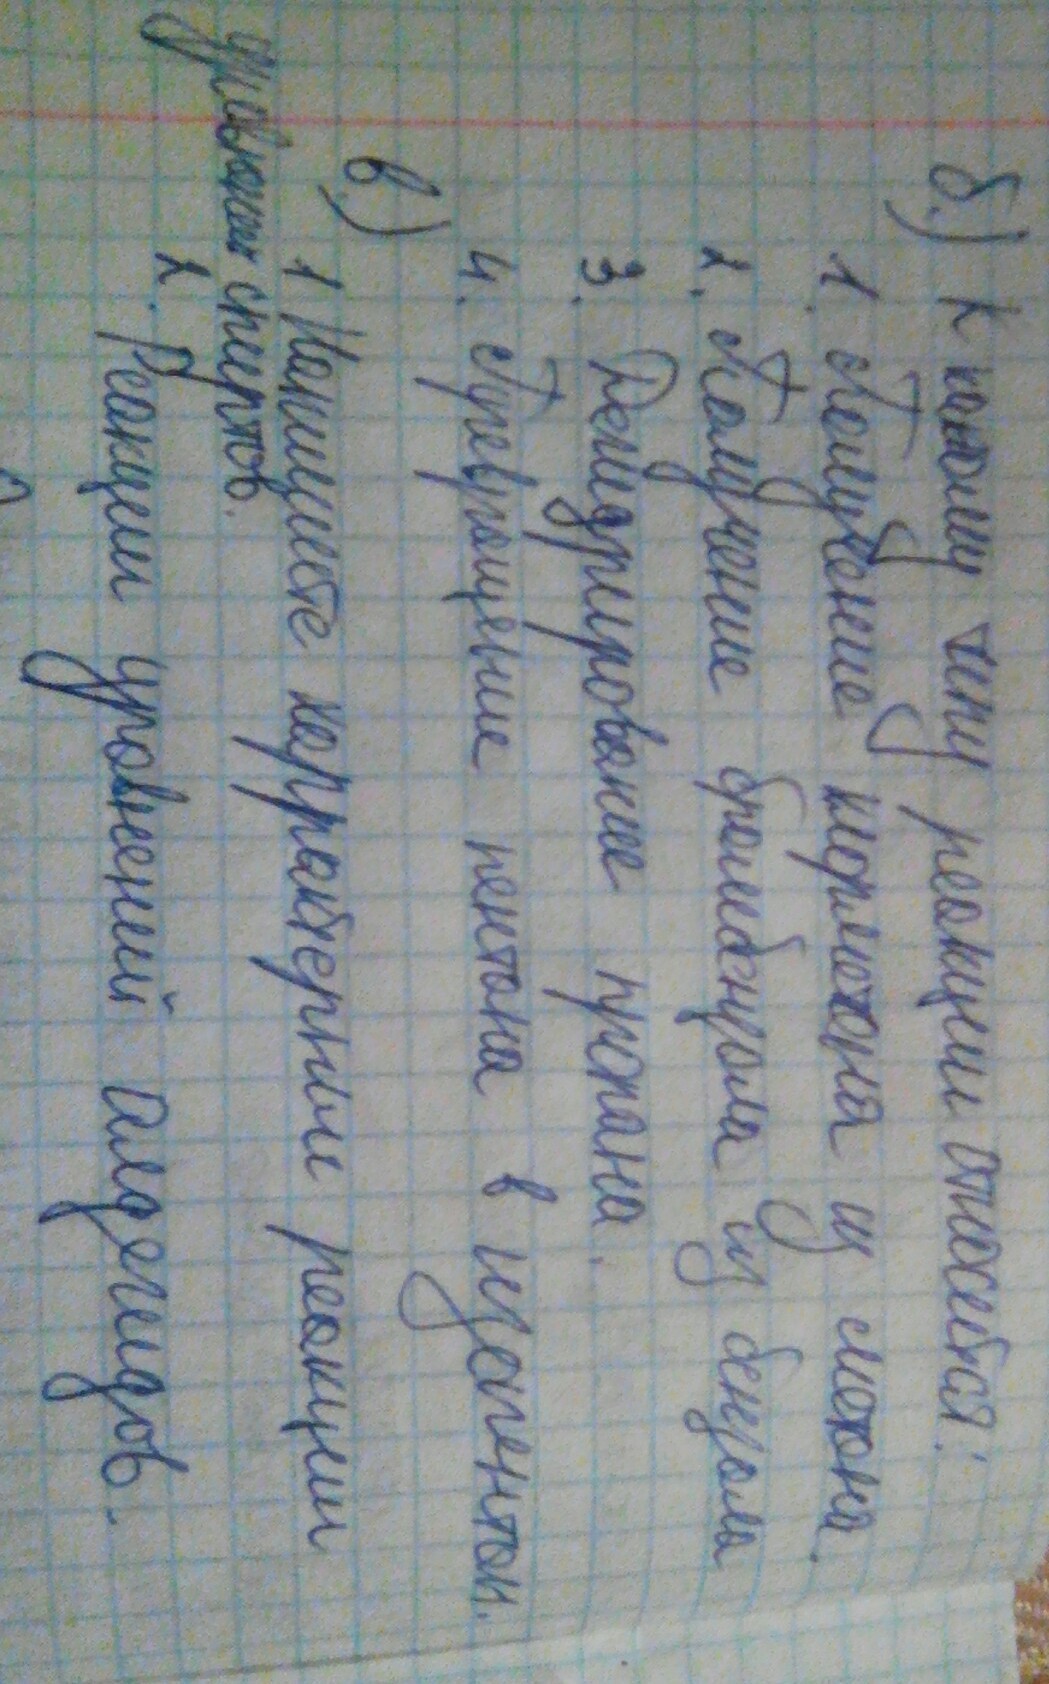 б.) К какому типу реакции относится:
1. Получение хлорметана из метана.
2. Получение бромбензола из бензола
3. Дегидрирование пропана.
4. Превращение пентана в изопентан.
в.)
1 Напишите характерные реакции
уравнении спиртов.
2. Реакции уравнений альдегидов.